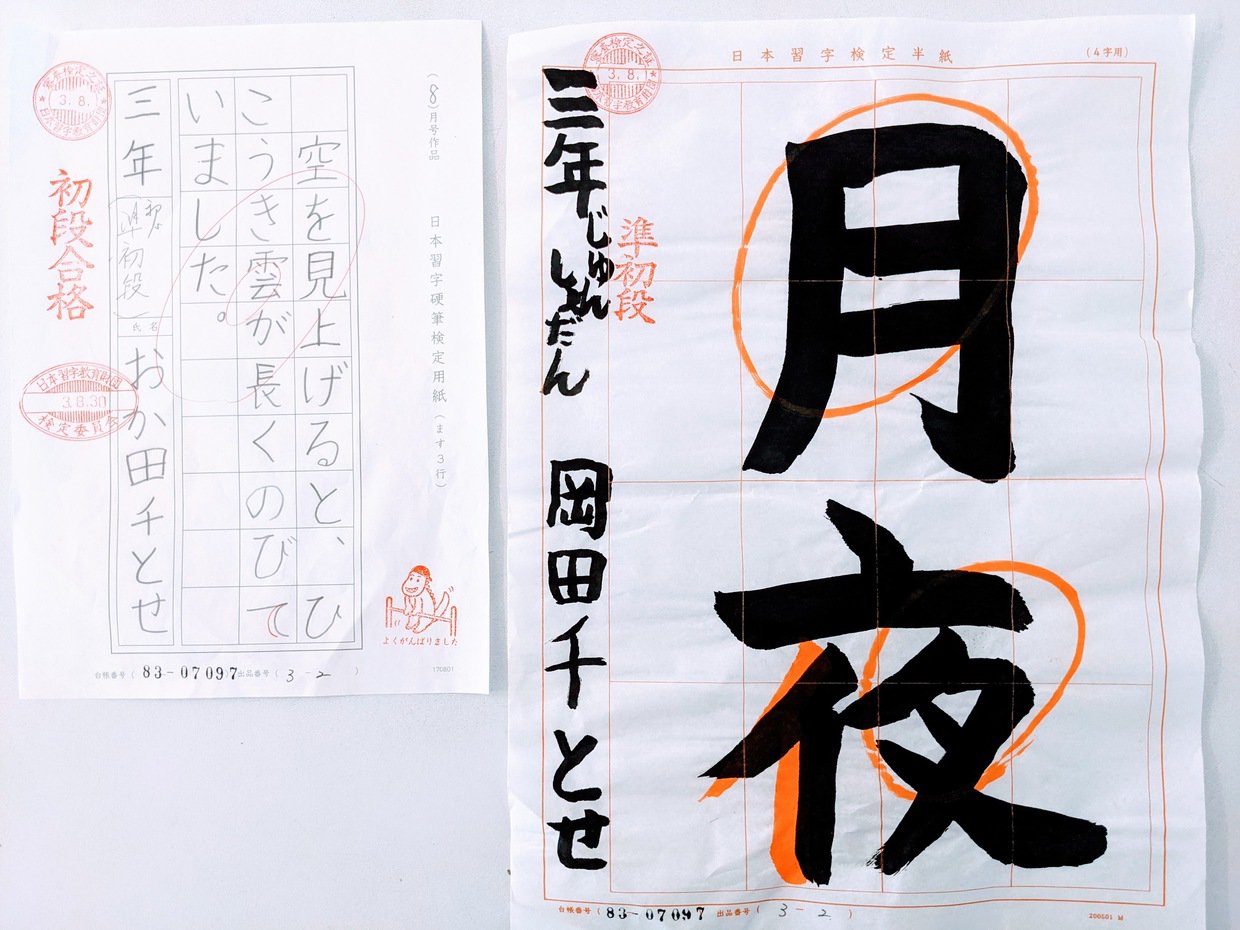 (8)月号作品 日本習字硬筆検定用紙(ます3行)
空を見上げると、ひ
こうき雲が長くのびて
いました。
三年 準初段 氏名 おか田千とせ
初段合格
3.8.
日本習字教育財団
3.8.30
検定委員会
よくがんばりました
台帳番号(83-07097 出品番号(3-2)
170801
日本習字検定半紙
(4字用)
月夜
準初段
三年じゅんしょだん 岡田千とせ
3.8.
台帳番号(83-07097 出品番号(3-2)
200501 M